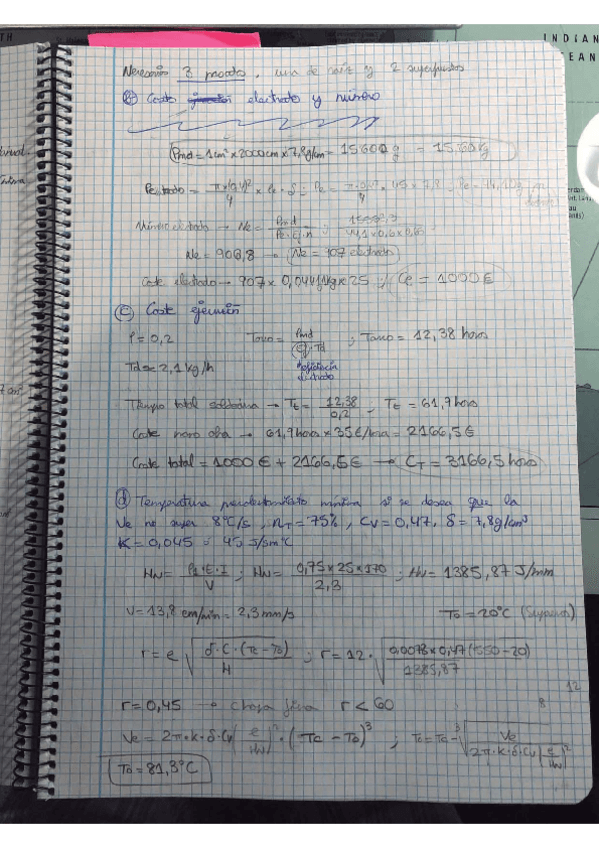 INDIAN
Necesario 3 pasadas, una de raíz y 2 superpuestas
b) Coste electrodo y número
Pmd = 1cm² x 2000cm x 7,8g/cm = 15600 g = 15,60 kg
Pe
Número electrodo → Ne =
Ne = 906,8 → Ne = 107 electrodo
Coste electrodo → 907 x 0,0441kg x 25 ; Ce = 1000€
c) Coste ejecución
f = 0,2 Tarco = Pmd ; Tarco = 12,38 horas
Td = 2,1 kg/h
Tiempo total soldadura → Tt = 12,38 / 0,2 ; Tt = 61,9 horas
Coste mano obra → 61,9 horas x 35€/hora = 2166,5€
Coste total = 1000€ + 2166,5€ → CT = 3166,5 horas
d) Temperatura precalentamiento mínima si se desea que la
Ve no supere 8°C/s, ηT = 75%, CV = 0,47, δ = 7,8g/cm³
K = 0,045 ó 45 J/sm°C
HN = η·E·I / V ; HN = 0,75 x 25 x 170 / 2,3 ; HN = 1385,87 J/mm
V = 13,8 cm/min = 2,3 mm/s To = 20°C
r = e √(δ·C·(Tc - To) / H) ; r = 12 · √(0,0078 x 0,47 (550 - 20) / 1385,87)
12
r = 0,45 → chapa fina r < 60
8
Ve = 2π·k·δ·Cv (e / HN)² · (Tc - To)³ ; To = Tc - ³√(Ve / 2π·k·δ·Cv (e / HN)²)
To = 81,3°C